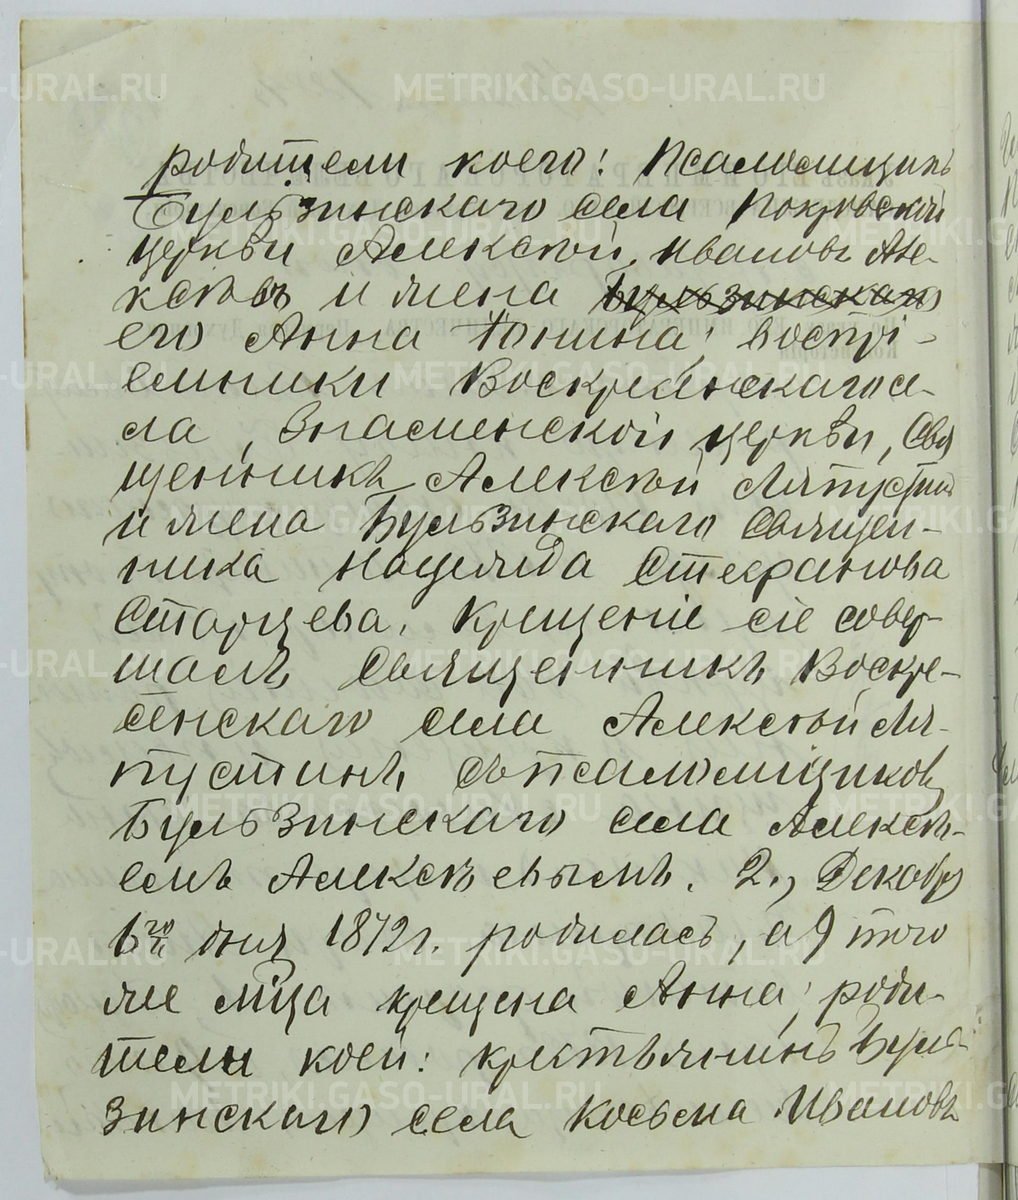 родители коего: Псаломщикъ
Бульзинскаго села Покровской
церкви Алексѣй Ивановъ Але-
ксѣевъ и жена Бульзинскаго
его Анна Юнина; воспрі-
емники Воскресенскаго се-
ла, Знаменской церкви, Свя
щенникъ Алексѣй Ляпустин
и жена Бульзинскаго священ-
ника Надежда Стефанова
Старцева. Крещеніе сіе совер-
шалъ Священникъ Воскре-
сенскаго села Алексѣй Ля-
пустинъ съ псаломщиком
Бульзинскаго села Алексѣ-
емъ Алексѣевымъ. 2., Декабря
6го дня 1872 г. родилась, а 9 того
же мца крещена Анна; роди-
тели коей: крестьянинъ Буль-
зинскаго села Косьма Ивановъ
METRIKI.GASO-URAL.RU